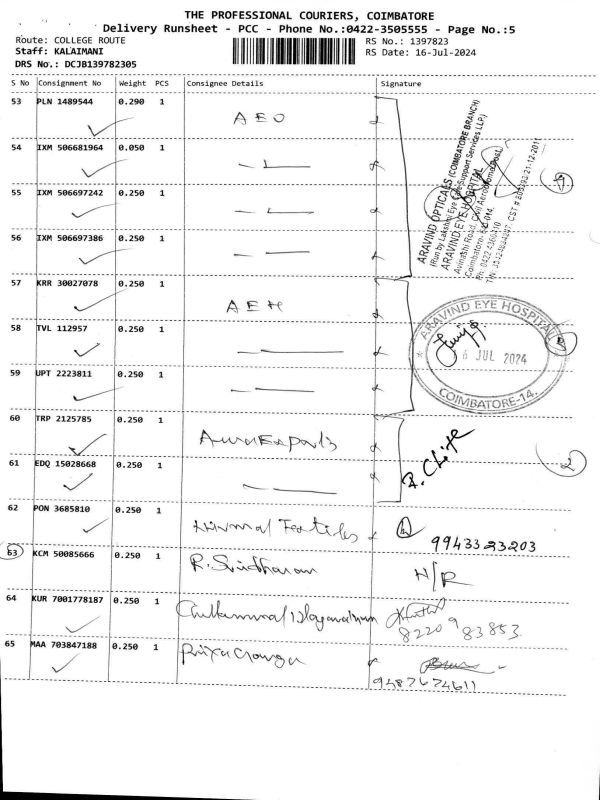 THE PROFESSIONAL COURIERS, COIMBATORE
Delivery Runsheet - PCC - Phone No.:0422-3505555 - Page No.:5
Route: COLLEGE ROUTE
Staff: KALAIMANI
DRS No.: DCJB139782305
RS No.: 1397823
RS Date: 16-Jul-2024
S No Consignment No Weight PCS Consignee Details Signature
53 PLN 1489544 0.290 1 AEO
54 IXM 506681964 0.050 1
55 IXM 506697242 0.250 1
56 IXM 506697386 0.250 1
ARAVIND OPTICALS (COIMBATORE BRANCH)
(Run by Lakshmi Eye Care Support Services LLP.)
ARAVIND EYE HOSPITAL
Avinashi Road, Civil Aerodrome Post,
Coimbatore-641 014.
57 KRR 30027078 0.250 1 AEH
58 TVL 112957 0.250 1
59 UPT 2223811 0.250 1
ARAVIND EYE HOSPITAL
JUL 2024
COIMBATORE-14.
60 TRP 2125785 0.250 1 Auru Exports
61 EDQ 15028668 0.250 1
2
62 PON 3685810 0.250 1 Nirmal Textiles
9943323203
63 KCM 50085666 0.250 1 R. Sridharan N/R
64 KUR 7001778187 0.250 1
8220983853
65 MAA 703847188 0.250 1
9487674611